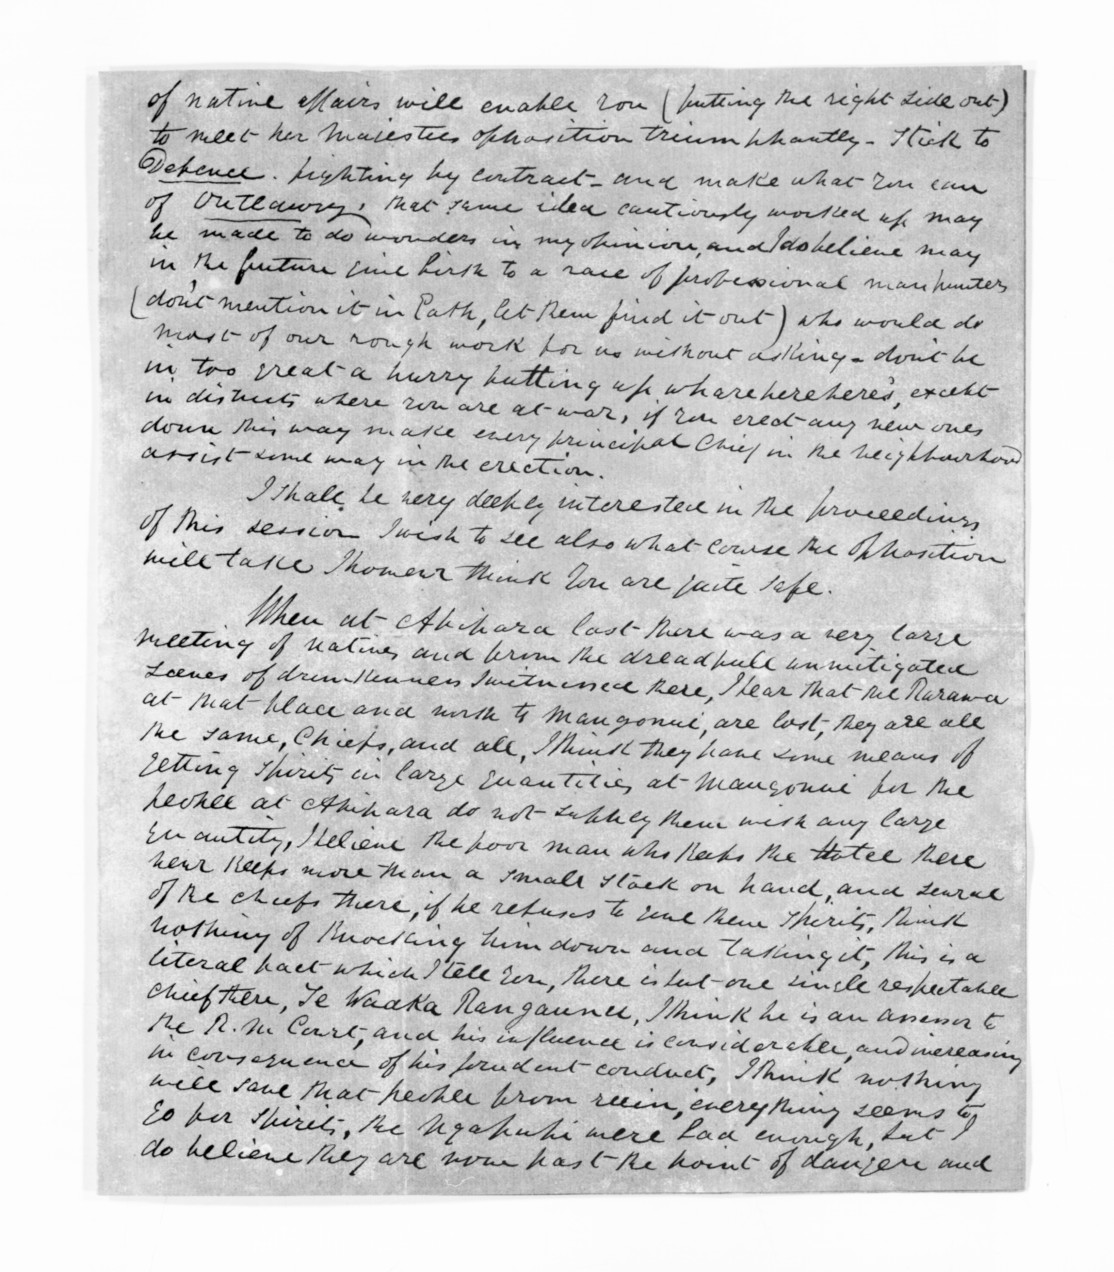 of native affairs will enable you (putting the right side out)
to meet her Majesties opposition triumphantly - Stick to
Defence. fighting by contract - and make what you can
of Outlawry, that same idea cautiously worked up may
be made to do wonders in my opinion, and I do believe may
in the future give birth to a race of professional man hunters
(don't mention it in Path, let them find it out) who would do
most of our rough work for us without asking - don't be
in too great a hurry putting up wharehereheres, except
in districts where you are at war, if you erect any new ones
down this way make every principal Chief in the neighbourhood
assist some way in the erection.
I shall be very deeply interested in the proceedings
of this session I wish to see also what course the Opposition
will take I however think you are quite safe.
When at Ahipara last there was a very large
meeting of natives and from the dreadfull unmitigated
scenes of drunkenness I witnessed there, I fear that the Rarawa
at that place and north to Mangonui, are lost, they are all
the same, Chiefs, and all, I think they have some means of
getting spirits in large quantities at Mangonui for the
people at Ahipara do not supply them with any large
quantity, I believe the poor man who keeps the Hotel there
never keeps more than a small stock on hand, and several
of the chiefs there, if he refuses to give them spirits, think
nothing of knocking him down and taking it, this is a
literal fact which I tell you, there is but one single respectable
chief there, Te Waaka Rangaunu, I think he is an assessor to
the R. M. Court, and his influence is considerable, and increasing
in consequence of his prudent conduct, I think nothing
will save that people from ruin, everything seems to
go for spirits, the Ngapuhi were bad enough, but I
do believe they are now past the point of danger and